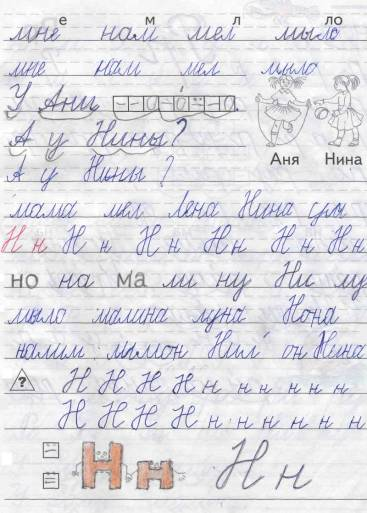 е м л ло
мне нам мел мыло
мне нам мел мыло
У Ани
А у Нины?
Аня Нина
А у Нины?
мама мел Лена Нина
Н н Н н Н н Н н Н н Н н
но на ма ли ну Ни лу
мыло малина луна Нона
налим лимон Нил он Нина
? Н Н Н Н н н н н н н
Н Н Н Н н н н н н н
Н н Н н